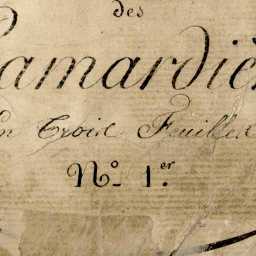 des
amardiè
n Troix Feuilles
N.º 1.er